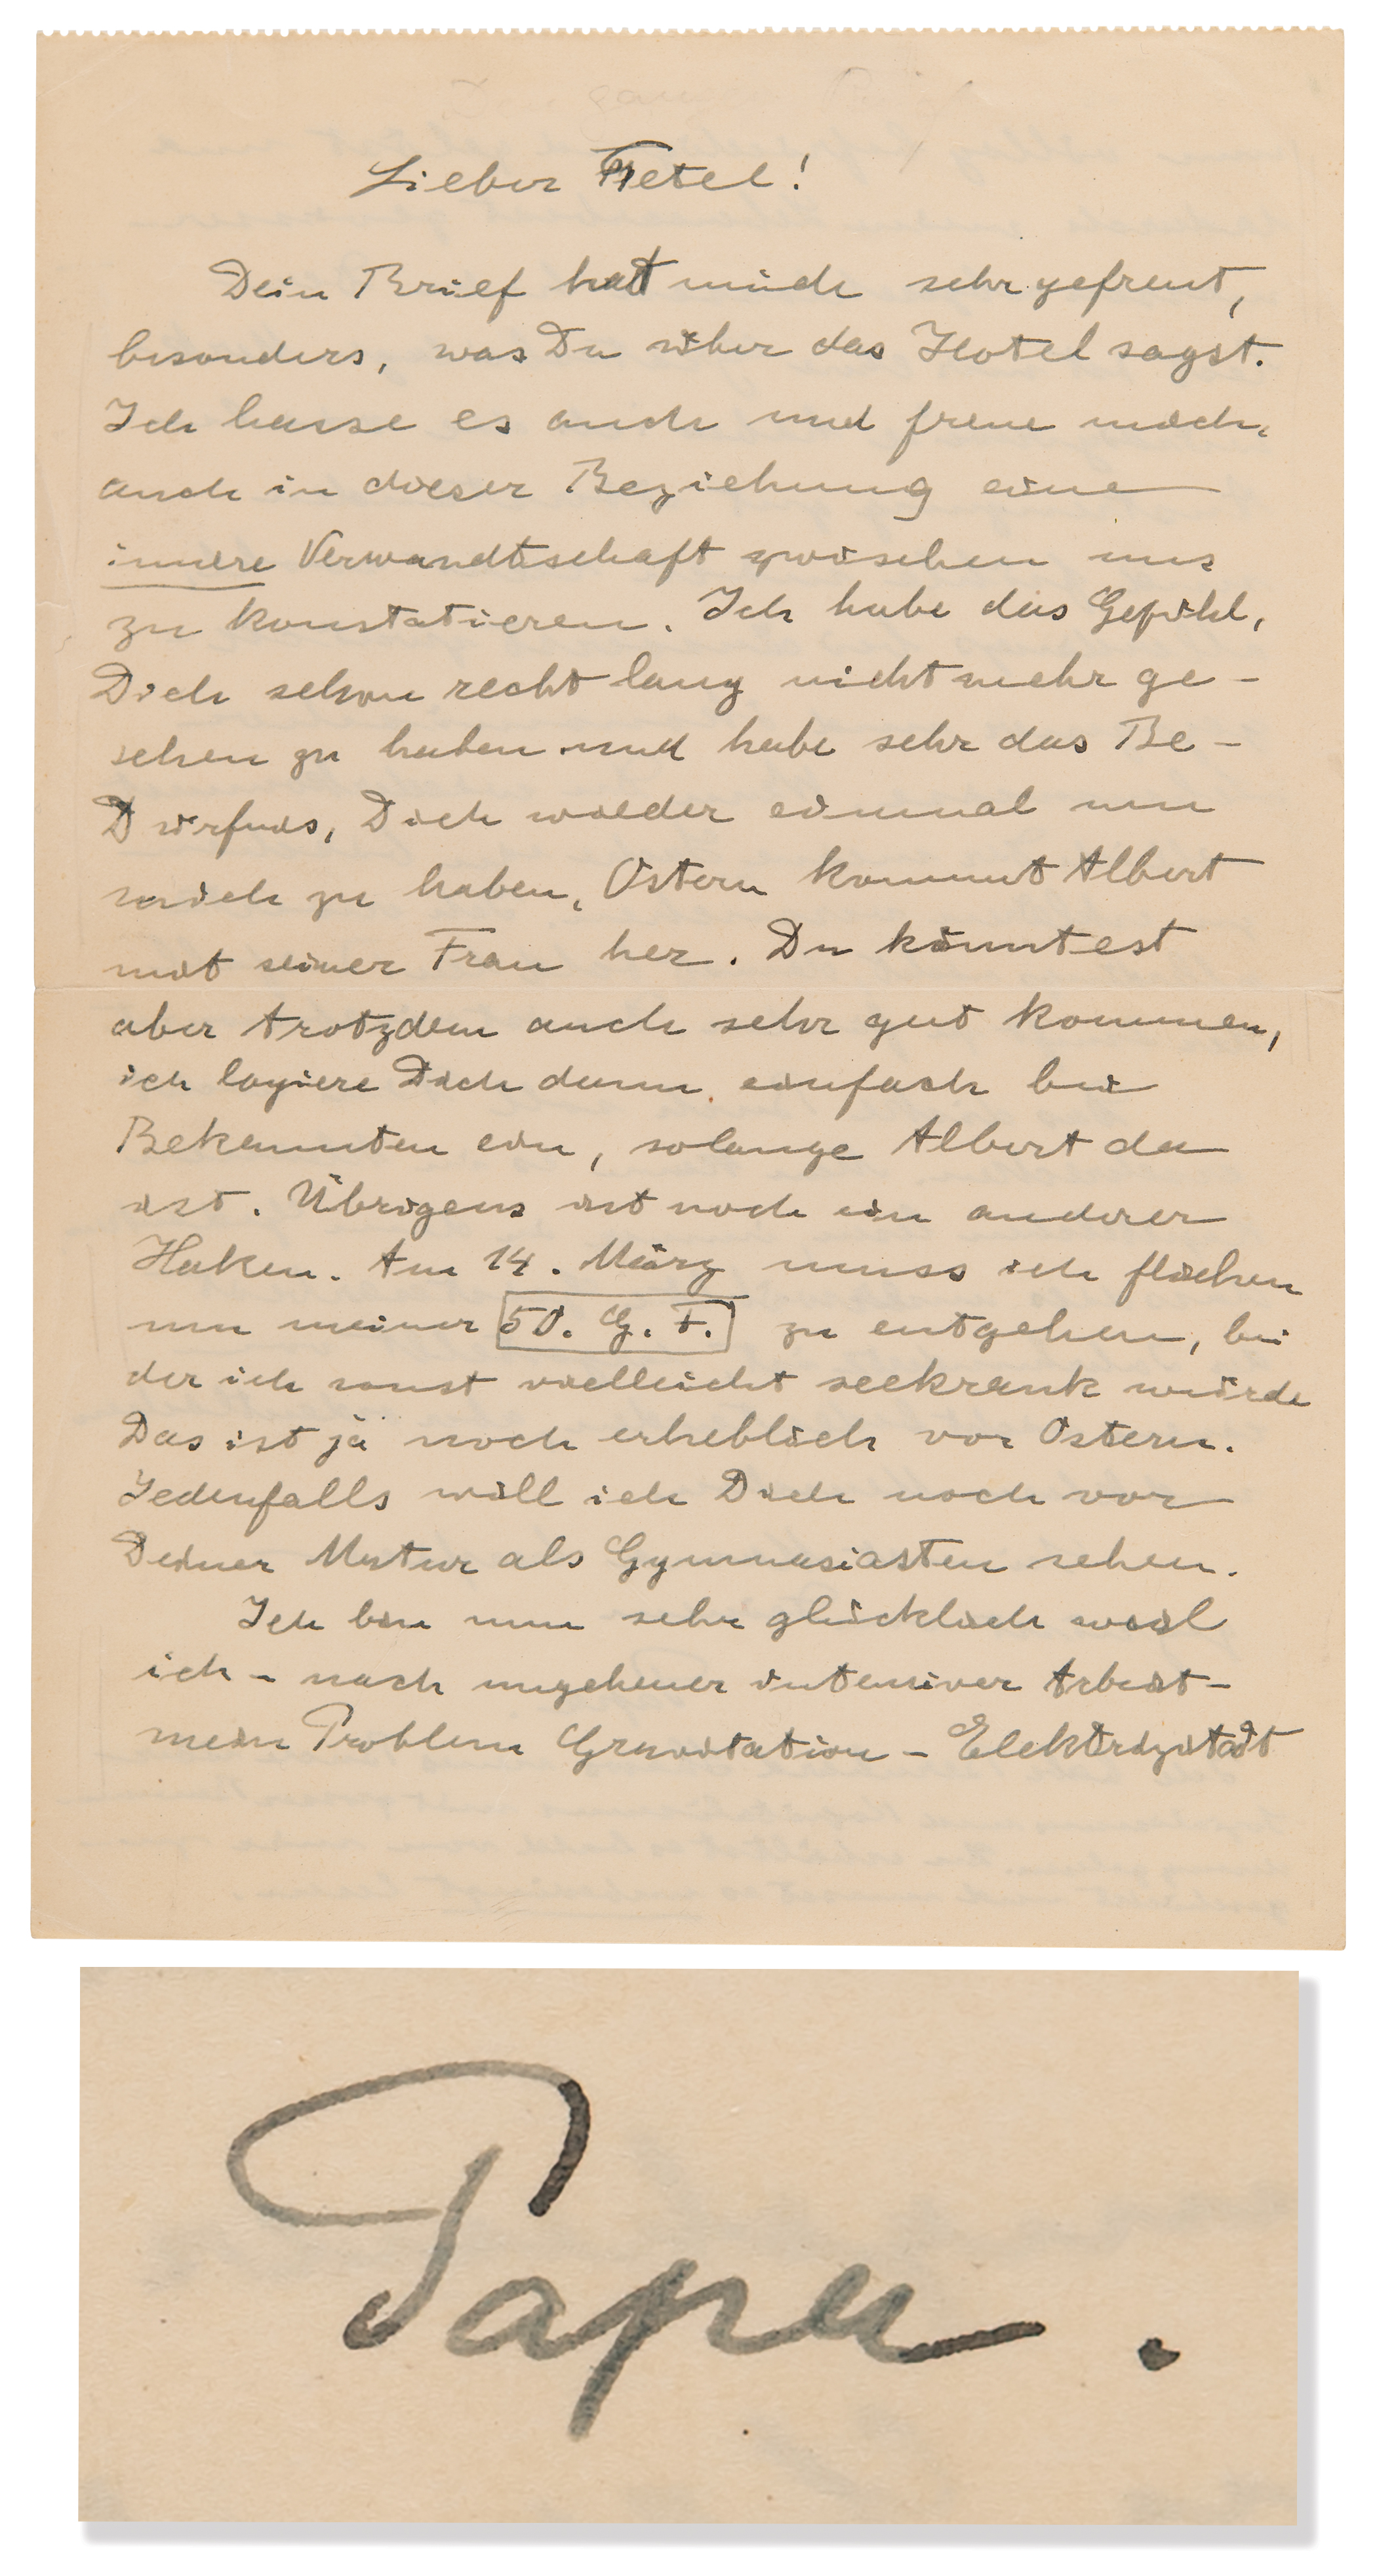 Lieber Tetel!
Dein Brief hat mich sehr gefreut,
besonders, was Du über das Hotel sagst.
Ich hasse es auch und freue mich,
auch in dieser Beziehung eine
innere Verwandtschaft zwischen uns
zu konstatieren. Ich habe das Gefühl,
Dich schon recht lang nicht mehr ge-
sehen zu haben und habe sehr das Be-
dürfnis, Dich wieder einmal um
mich zu haben. Ostern kommt Albert
mit seiner Frau her. Du könntest
aber trotzdem auch sehr gut kommen,
ich logiere Dich dann einfach bei
Bekannten ein, solange Albert da
ist. Übrigens ist noch ein anderer
Haken. Am 14. März muss ich fliehen
um meiner 50. G. F. zu entgehen, bei
der ich sonst vielleicht seekrank würde
Das ist ja noch erheblich vor Ostern.
Jedenfalls will ich Dich noch vor
Deiner Matur als Gymnasiasten sehen.
Ich bin nun sehr glücklich weil
ich - nach ungeheuer intensiver Arbeit -
mein Problem Gravitation - Elektrizität
Papa.